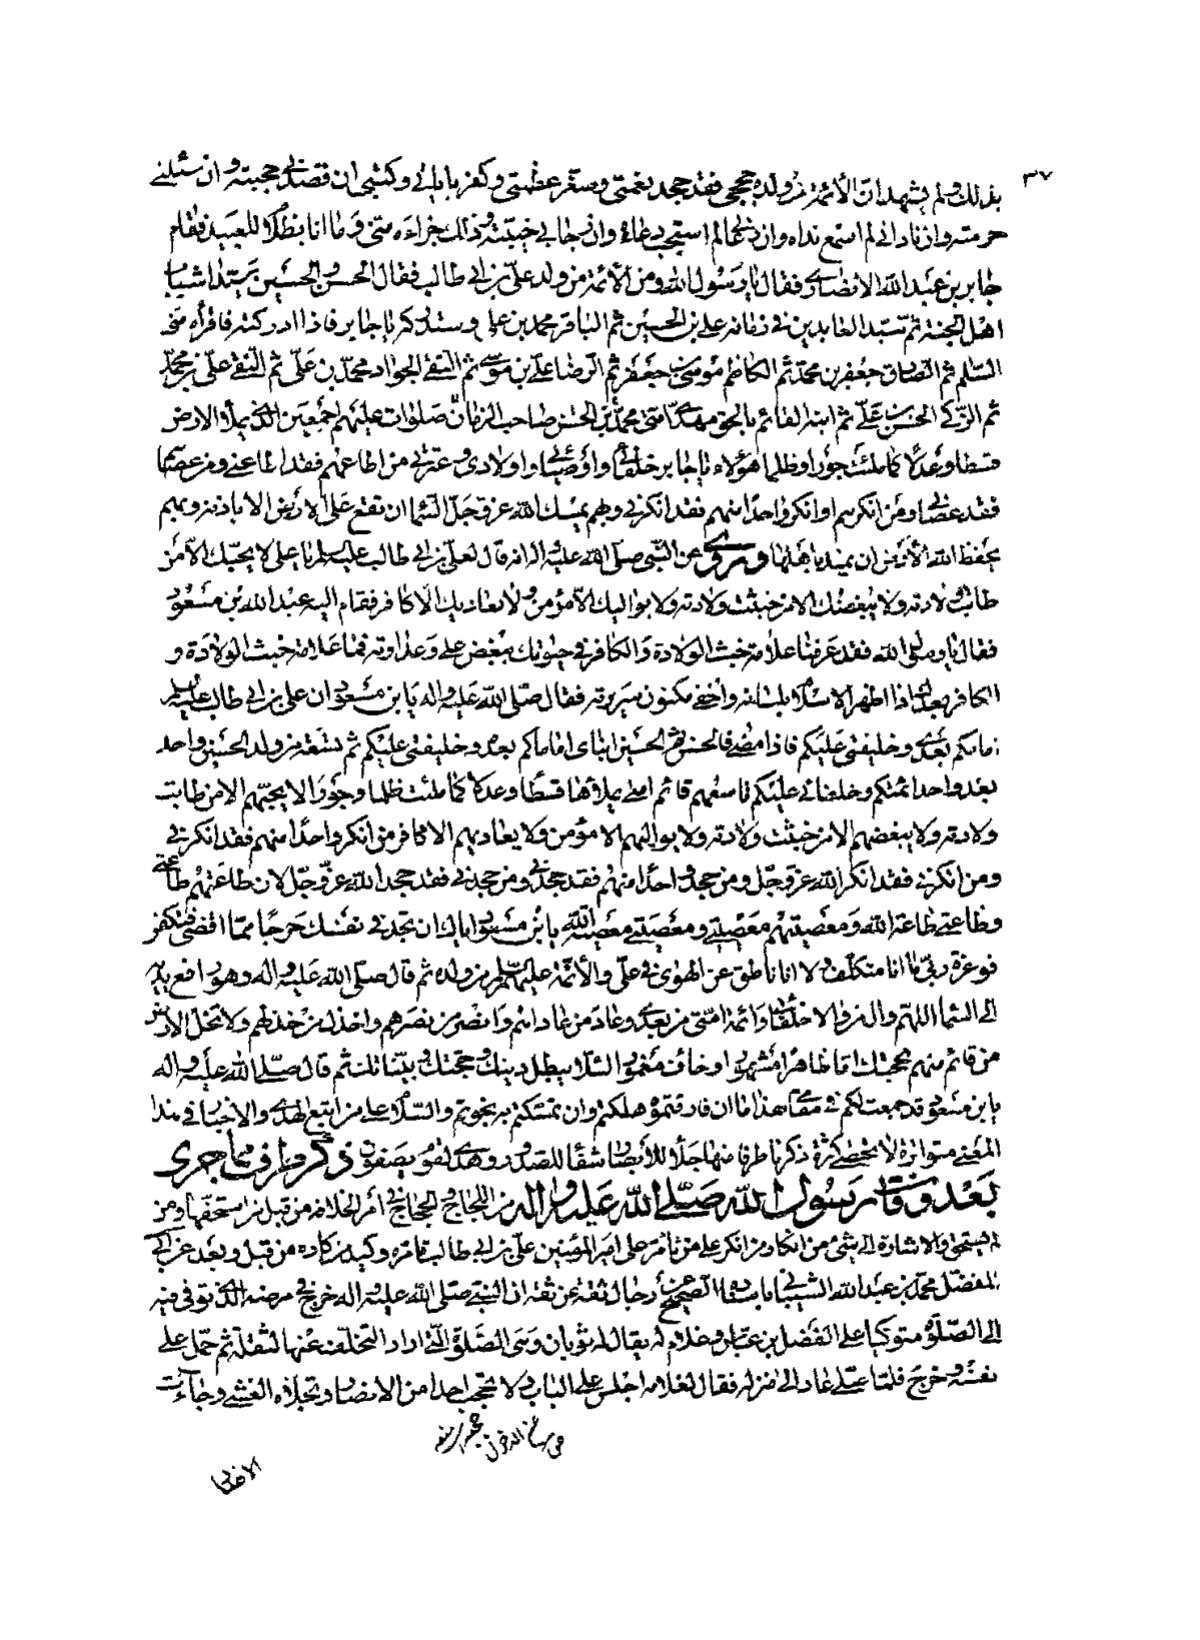 ٣٧
بذلك ولم يشهد ان الأئمة من ولده حججي فقد جحد نعمتي وصغر عظمتي وكفر باياتي وكتبي ان قصدني حجبته وان سئلني
حرمته وان ناداني لم اسمع نداه وان دعاني لم استجب دعاءه وان رجاني خيبته وذلك جزاءه مني وما انا بظلام للعبيد فقام
جابر بن عبد الله الانصاري فقال يا رسول الله ومن الأئمة من ولد علي بن ابي طالب فقال الحسن والحسين سيدا شباب
اهل الجنة ثم سيد العابدين في زمانه علي بن الحسين ثم الباقر محمد بن علي وستدركه يا جابر فاذا ادركته فاقرأه مني
السلم ثم الصادق جعفر بن محمد ثم الكاظم موسى بن جعفر ثم الرضا علي بن موسى ثم التقي الجواد محمد بن علي ثم النقي علي بن محمد
ثم الزكي الحسن بن علي ثم ابنه القائم بالحق مهدي امتي محمد بن الحسن صاحب الزمان صلوات عليهم اجمعين الذي يملأ الارض
قسطا وعدلا كما ملئت جورا وظلما هؤلاء يا جابر خلفائي واوصيائي واولادي وعترتي من اطاعهم فقد اطاعني ومن عصاهم
فقد عصاني ومن انكرهم او انكر واحدا منهم فقد انكرني وبهم يمسك الله عز وجل السماء ان تقع على الارض الا باذنه وبهم
يحفظ الله الأرض ان تميد باهلها وروي عن النبي صلى الله عليه واله انه قال لعلي بن ابي طالب عليه السلم يا علي لا يحبك الا من
طابت ولادته ولا يبغضك الا من خبثت ولادته ولا يواليك الا مؤمن ولا يعاديك الا كافر فقام اليه عبد الله بن مسعود
فقال يا رسول الله فقد عرفنا علامة خبث الولادة والكافر في حيوتك ببغض علي وعداوته فما علامة خبث الولادة و
الكافر بعدك اذا اظهر الاسلام بلسانه واخفى مكنون سريرته فقال صلى الله عليه واله يا بن مسعود ان علي بن ابي طالب عليه السلم
امامكم بعدي وخليفتي عليكم فاذا مضى فالحسن ثم الحسين ابناي امامكم بعده وخليفتي عليكم ثم تسعة من ولد الحسين واحد
بعد واحد ائمتكم وخلفائي عليكم تاسعهم قائم امتي يملأها قسطا وعدلا كما ملئت ظلما وجورا لا يحبهم الا من طابت
ولادته ولا يبغضهم الا من خبثت ولادته ولا يواليهم الا مؤمن ولا يعاديهم الا كافر من انكر واحدا منهم فقد انكرني
ومن انكرني فقد انكر الله عز وجل ومن جحد واحدا منهم فقد جحدني ومن جحدني فقد جحد الله عز وجل لان طاعتهم طاعتي
وطاعتي طاعة الله ومعصيتهم معصيتي ومعصيتي معصية الله يا بن مسعود اياك ان تجد في نفسك حرجا مما اقضي فتكفر
فوعزة ربي ما انا متكلف ولا انا ناطق عن الهوى في علي والأئمة عليهم السلم من ولده ثم قال صلى الله عليه واله وهو رافع يديه
الى السماء اللهم وال من والا خلفائي وائمة امتي من بعدي وعاد من عاداهم وانصر من نصرهم واخذل من خذلهم ولا تخل الارض
من قائم منهم بحجتك اما ظاهرا مشهورا او خائف مغمورا لئلا يبطل دينك وحجتك وبيناتك ثم قال صلى الله عليه واله
يا بن مسعود قد جمعت لكم في مقامي هذا ما ان فارقتموه هلكتم وان تمسكتم به نجوتم والسلام على من اتبع الهدى والاخبار في هذا
المعنى متواترة لا تحصى كثرة ذكرنا طرفا منها جلاء للأبصار وشفاء للصدور وهدى لقوم يصفون ذكر طرف مما جرى
بعد وفات رسول الله صلى الله عليه واله من اللجاج والحجاج في أمر الخلافة من قبل من استحقها ومن
لم يستحق والاشارة الى شيء من انكار من انكر على من تأمر على امير المؤمنين علي بن ابي طالب تأمره وكيد من كاده من قبل وبعد عن ابي
المفضل محمد بن عبد الله الشيباني باسناده الصحيح عن رجال ثقة عن ثقة ان النبي صلى الله عليه واله خرج في مرضه الذي توفي فيه
الى الصلوة متوكيا على الفضل بن عباس وغلام له يقال له ثوبان وهي الصلوة التي اراد التخلف عنها لثقله ثم حمل على
نفسه وخرج فلما صلى عاد الى منزله فقال لغلامه اجلس على الباب ولا تحجب احدا من الانصار وتجلاه الغشي وجاءت
الدخول
الانصار